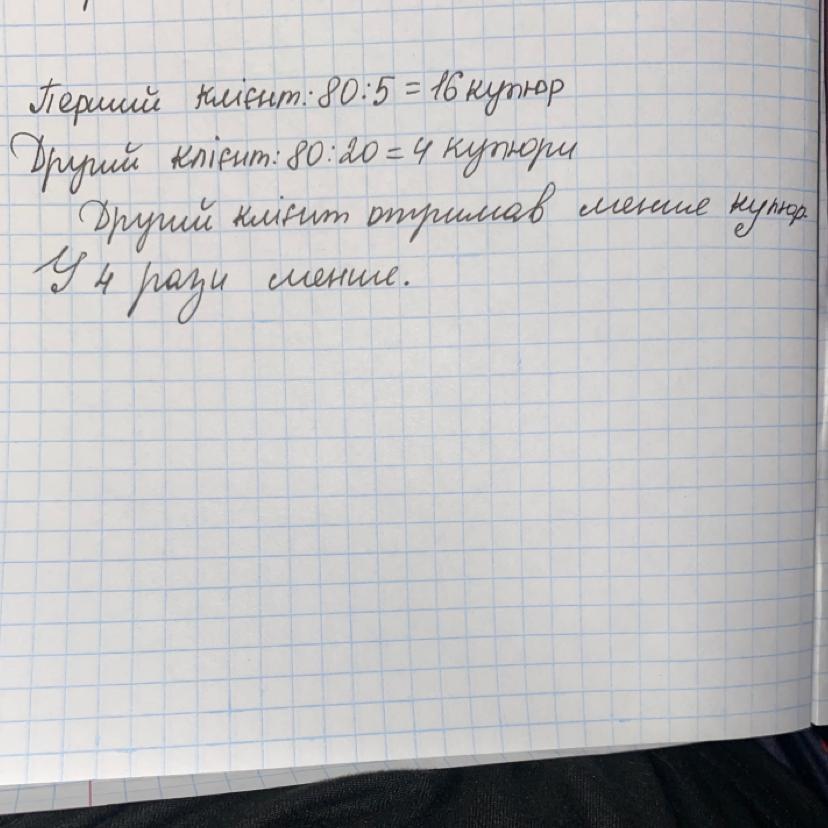 Перший клієнт: 80:5 = 16 купюр
Другий клієнт: 80:20 = 4 купюри
Другий клієнт отримав менше купюр.
У 4 рази менше.